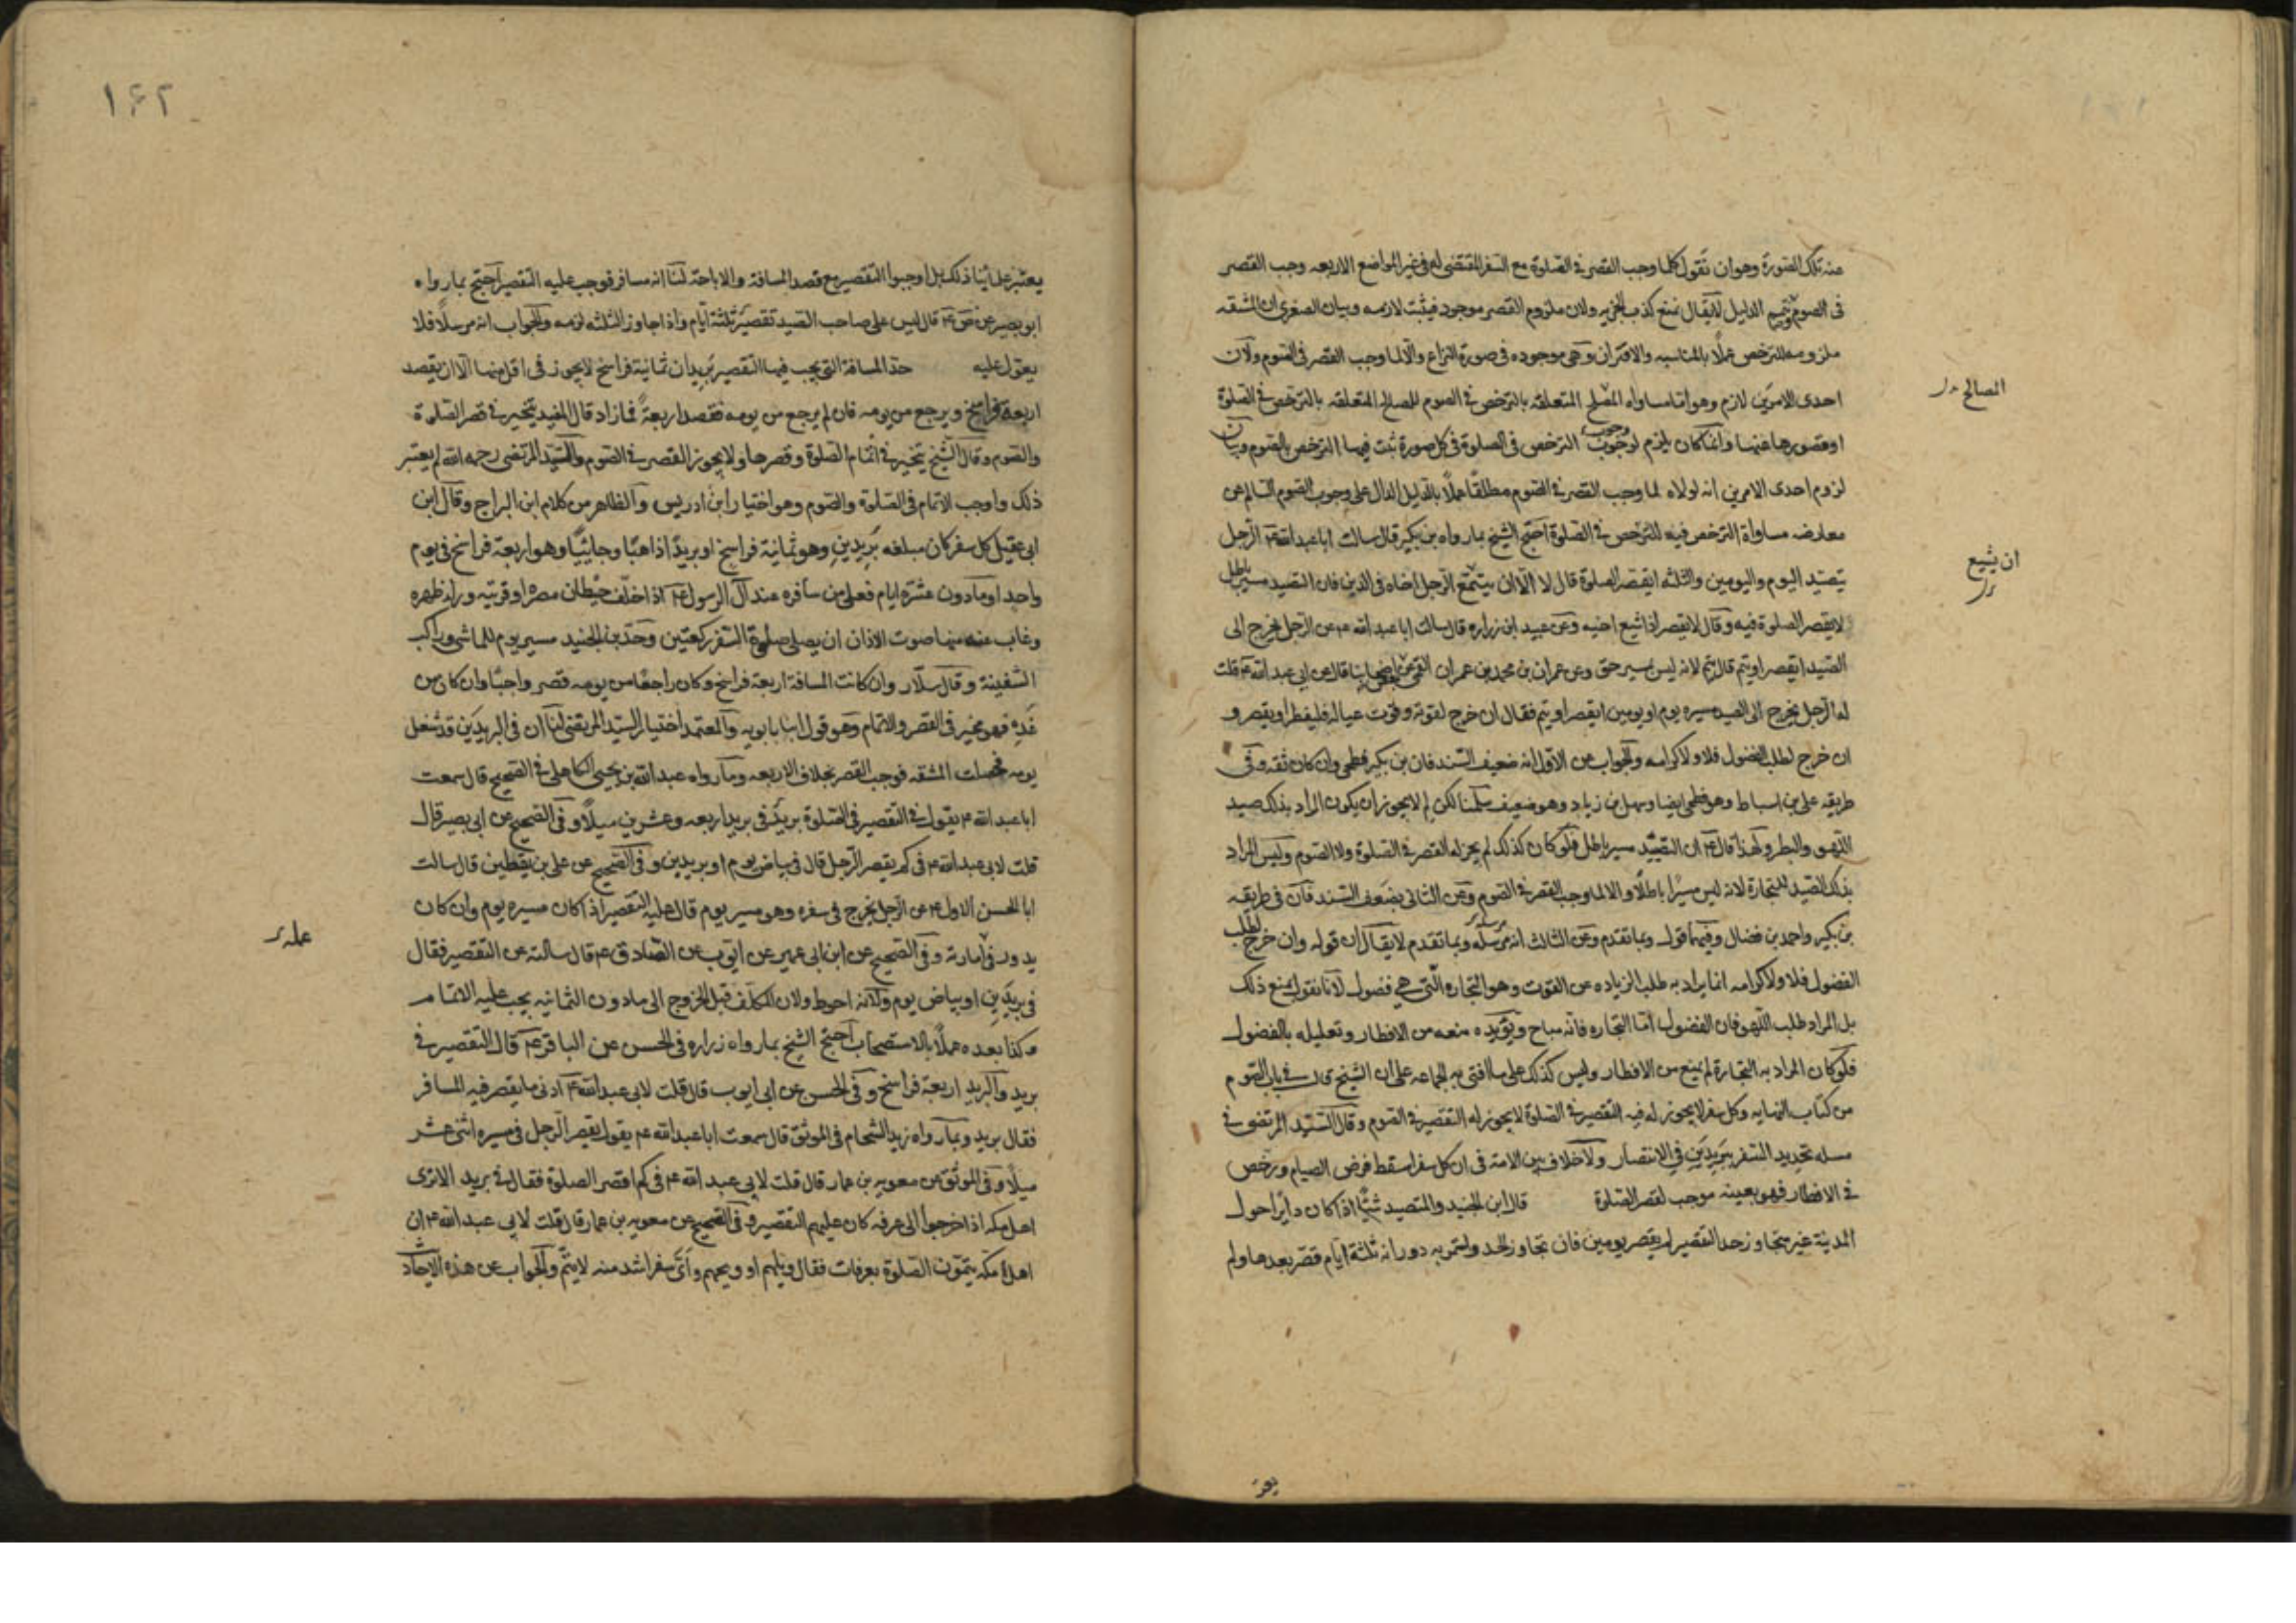 عنه تلك الصورة وهو ان نقول كلما وجب القصر في الصلوة مع السفر المقتضي له في غير المواضع الاربعه وجب القصر
في الصوم ويتم الدليل لا يقال نمنع كذب الجزيه ولان ملزوم القصر موجود فيثبت لازمه وبيان الصغرى ان المشقه
ملزومه للترخص عملاً بالمناسبه والاقتران وهي موجوده في صورة النزاع والا لما وجب القصر في الصوم ولان
احدى الامرين لازم وهو اما مساواه المصلح المتعلقه بالترخص في الصوم للمصالح المتعلقه بالترخص في الصلوة
المصالح
او قصورها عنها وايما كان يلزم لوجوب وجوب الترخص في الصلوة في كل صورة ثبت فيها الترخص بالصوم وبيان
لزوم احدى الامرين انه لولاه لما وجب القصر في الصوم مطلقاً عملاً بالدليل الدال على وجوب الصوم السالم عن
معارضه مساواة الترخص فيه للترخص في الصلوة احتج الشيخ بما رواه بن بكير قال سالت ابا عبد الله ع الرجل
يتصيد اليوم واليومين والثلثه ايقصر الصلوة قال لا الا ان يشيع الرجل اخاه في الدين فان التصيد مسير باطل
ان يشيع
لا يقصر الصلوة فيه وقال لا يقصر اذا شيع اخيه وعن عبيد ابن زراره قال سالت ابا عبد الله ع عن الرجل يخرج الى
الصيد ايقصر او يتم قال يتم لانه ليس بمسير حق وعن عمران بن محمد بن عمران القمي عن بعض اصحابنا قال عن ابي عبد الله ع قلت
له الرجل يخرج الى الصيد مسيره يوم او يومين ايقصر او يتم فقال ان خرج لقوته وقوت عياله فليفطر او يقصر و
ان خرج لطلب الفضول فلا ولا كرامه والجواب عن الاول انه ضعيف السند فان بن بكير فطحي وان كان ثقه وفي
طريقه علي بن اسباط وهو فطحي ايضا وسهل بن زياد وهو ضعيف سلمنا لكن لم لا يجوز ان يكون المراد بذلك صيد
اللهو والبطر ولهذا قال ع ان التصيد سير باطل فلو كان كذلك لم يجز له القصر في الصلوة ولا الصوم وليس المراد
بذلك الصيد للتجارة لانه ليس مسيراً باطلاً والا لما وجب القصر في الصوم وعن الثاني بضعف السند فان في طريقه
بن بكير واحمد بن فضال وفيهما قول وبما تقدم وعن الثالث انه مرسله وبما تقدم لا يقال ان قوله وان خرج لطلب
الفضول فلا ولا كرامه انما يراد به طلب الزياده عن القوت وهو التجاره التي هي فضول لانا نقول نمنع ذلك
بل المراد طلب اللهو فان الفضول اما التجاره فانه مباح ويؤيده منعه من الافطار وتعليله بالفضول
فلو كان المراد به التجارة لم يمنع من الافطار وليس كذلك على ما افتى به الجماعه على ان الشيخ قال في باب الصوم
من كتاب النهايه وكل سفر لا يجوز له فيه التقصير في الصلوة لا يجوز له التقصير في الصوم وقال السيد المرتضى في
مسله تحديد السفر ببريدين في الانتصار ولا خلاف بين الامة في ان كل سفر اسقط فرض الصيام ورخص
في الافطار فهو بعينه موجب لقصر الصلوة قال ابن الجنيد والمتصيد شيئا اذا كان دائرا حول
المدينة غير متجاوز حد التقصير لم يقصر يومين فان تجاوز الحد واستمر به دورانه ثلثة ايام قصر بعدها ولم
يعتبر
١٦٢
يعتبر علماؤنا ذلك بل اوجبوا التقصير مع قصد المسافة والاباحة لنا انه مسافر فوجب عليه التقصير احتج بما رواه
ابو بصير عن ص ع قال ليس على صاحب الصيد تقصير ثلثة ايام واذا جاوز الثلثه لزمه والجواب انه مرسلاً فلا
يعول عليه حد المسافة التي يجب فيها التقصير بريدان ثمانية فراسخ لا يجوز في اقل منها الا ان يقصد
اربعة فراسخ ويرجع من يومه فان لم يرجع من يومه فقصد اربعة فما زاد قال المفيد يتخير في قصر الصلوة
والصوم وقال الشيخ يتخير في اتمام الصلوة وقصرها ولا يجوز القصر في الصوم والسيد المرتضى رحمه الله لم يعتبر
ذلك واوجب الاتمام في الصلوة والصوم وهو اختيار ابن ادريس والظاهر من كلام ابن البراج وقال ابن
ابي عقيل كل سفر كان مبلغه بريدين وهو ثمانية فراسخ او بريداً ذاهباً وجائياً وهو اربعة فراسخ في يوم
واحد او ما دون عشرة ايام فعلى من سافره عند آل الرسول ع اذا خلف حيطان مصره او قريته وراء ظهره
وغاب عنه منها صوت الاذان ان يصلي صلوة السفر ركعتين وحد بن الجنيد مسير يوم للماشي وراكب
السفينة وقال سلار وان كانت المسافة اربعة فراسخ وكان راجعاً من يومه قصر واجباً وان كان من
غده فهو مخير في القصر والاتمام وهو قول ابنا بابويه والمعتمد اختيار السيد المرتضى لنا ان في البريدين قد شغل
يومه فحصلت المشقه فوجب القصر بخلاف الاربعه وما رواه عبد الله بن يحيى الكاهلي في الصحيح قال سمعت
ابا عبد الله ع يقول في التقصير في الصلوة بريد في بريد اربعه وعشرين ميلاً وفي الصحيح عن ابي بصير قال
قلت لابي عبد الله ع في كم يقصر الرجل قال في بياض يوم او بريدين وفي الصحيح عن علي بن يقطين قال سالت
ابا الحسن الاول ع عن الرجل يخرج في سفره وهو مسير يوم قال عليه التقصير اذا كان مسيره يوم وان كان
يدور في امارته وفي الصحيح عن ابن ابي عمير عن ايوب عن الصادق ع قال سالته عن التقصير فقال
عمله
في بريدين او بياض يوم ولانه احوط ولان المكلف قبل الخروج الى ما دون الثمانيه يجب عليه الاتمام
وكذا بعده عملاً بالاستصحاب احتج الشيخ بما رواه زراره في الحسن عن الباقر ع قال التقصير في
بريد والبريد اربعة فراسخ وفي الحسن عن ابي ايوب قال قلت لابي عبد الله ع ادنى ما يقصر فيه المسافر
فقال بريد وبما رواه زيد الشحام في الموثق قال سمعت ابا عبد الله ع يقول يقصر الرجل في مسيره اثنى عشر
ميلاً وفي الموثق عن معويه بن عمار قال قلت لابي عبد الله ع في كم اقصر الصلوة فقال في بريد الا ترى
اهل مكه اذا خرجوا الى عرفه كان عليهم التقصير وفي الصحيح عن معويه بن عمار قال قلت لابي عبد الله ع ان
اهل مكه يتمون الصلوة بعرفات فقال ويلهم او ويحهم واي سفر اشد منه لا يتم والجواب عن هذه الاحاد